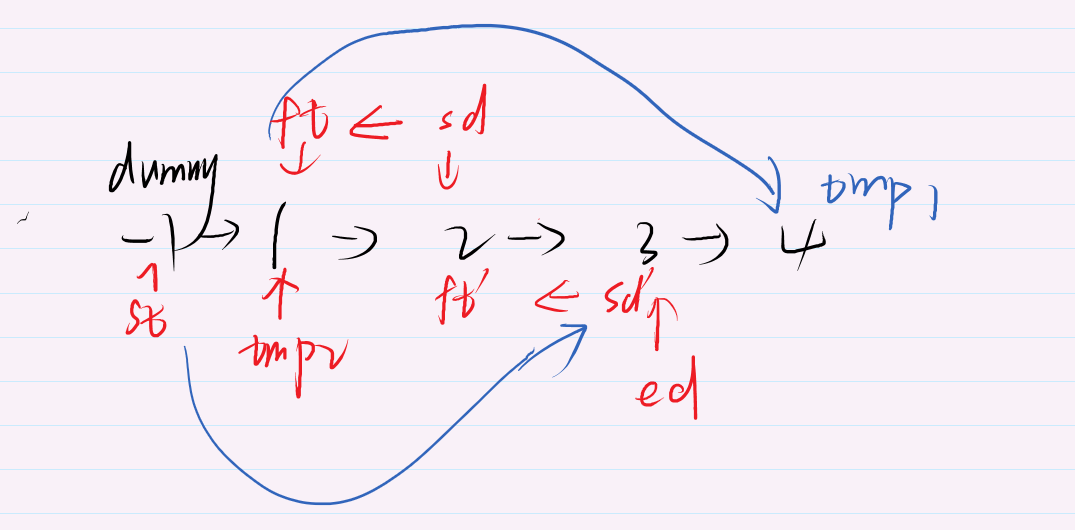 ft ← sd
↓ ↓
dummy
tmp1
-1 → 1 → 2 → 3 → 4
↑ ↑ ft' ← sd' ↑
st tmp2 ed